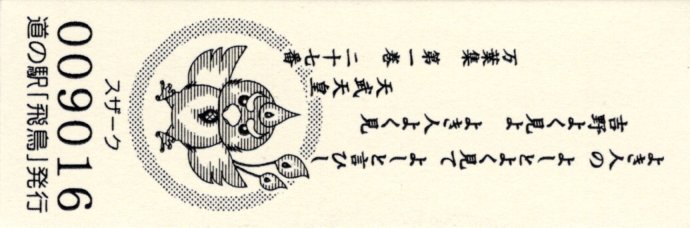 よき人の よしとよく見て よしと言ひし
吉野よく見よ よき人よく見
天武天皇
万葉集 第一巻 二十七番
スザーク
009016
道の駅「飛鳥」発行